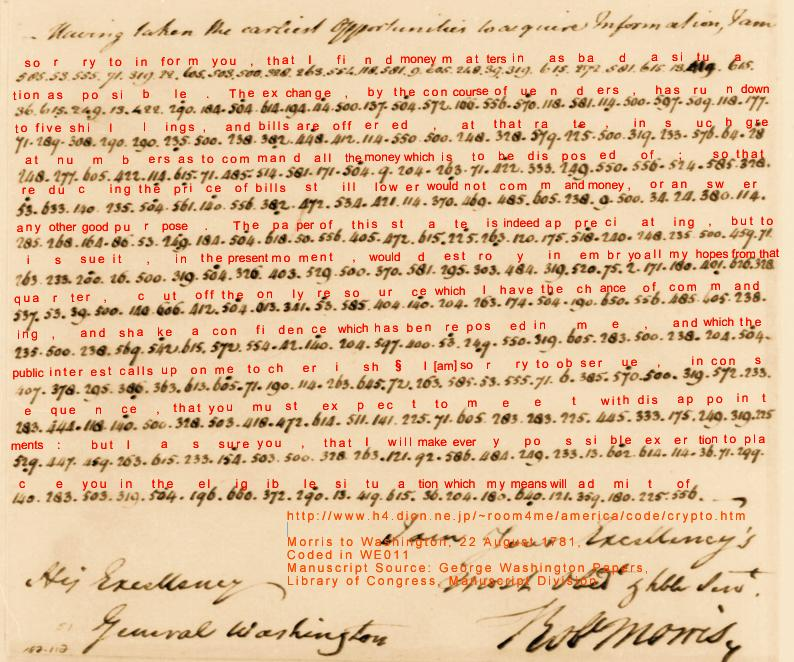 Having taken the earliest Opportunities to acquire Information, I am
so r ry to in for m you , that I fi n d money m at ters in as ba d a si tu a
585.53.555.71.319.22.605.503.500.328.263.554.118.581.9.605.248.39.319.615.272.581.615.13.419.615.
tion as po si b le . The ex change , by the con course of ve n d ers , has ru n down
36.615.249.13.422.290.184.504.614.194.44.500.137.504.572.106.556.570.118.581.114.500.597.509.118.177.
to five shi l l ings , and bills are off er ed , at that ra t e , in s u c h gre
71.289.308.290.290.235.500.238.382.448.412.114.550.500.248.328.579.225.500.319.233.576.64.28
at nu m b ers as to com man d all the money which is to be dis pos ed of : so that
248.277.605.422.114.615.71.485.514.581.171.504.9.204.263.71.422.333.249.550.556.524.585.328.
re du c ing the pri ce of bills st ill low er would not com m and money , or an sw er
53.633.140.235.504.561.140.556.382.472.534.421.114.370.469.485.605.238.9.500.34.24.380.114.
any other good pu r pose . The pa per of this st a te is indeed ap pre ci at ing , but to
285.268.164.86.53.249.184.504.618.50.556.405.472.615.225.263.120.175.518.240.248.235.500.459.71
i s sue it , in the present mo ment , would d est ro y in em br yo all my hopes from that
263.233.200.26.500.319.504.326.403.529.500.370.581.295.303.484.319.520.75.2.171.180.401.626.328
qua r ter , c ut off the on ly re so ur ce which I have the ch ance of com m and
537.53.39.500.140.606.412.504.013.341.53.585.404.140.204.263.174.504.190.650.556.485.605.238.
ing , and sha ke a con fi den ce which has ben re pos ed in m e , and which the
235.500.238.569.542.615.572.554.42.140.204.597.400.53.249.550.319.605.283.500.238.204.504.
public inter est calls up on me to ch er i sh § I [am] so r ry to ob ser ve , in con s
407.378.295.386.363.613.605.71.190.114.263.645.72.263.585.53.555.71.6.385.570.500.319.572.233.
e que n ce , that you mu st ex pec t to m e e t with dis ap po in t
283.444.118.140.500.328.503.418.472.614.511.141.225.71.605.283.283.225.445.333.175.249.319.225
ments : but I a s sure you , that I will make ever y po s si ble ex er tion to pla
529.447.459.263.615.233.154.503.500.328.263.121.92.586.484.249.233.13.602.614.114.36.71.299.
c e you in the el ig ib le si tu a tion which my means will ad mi t of
140.283.503.319.504.196.660.372.290.13.419.615.36.204.180.640.121.359.180.225.556.
http://www.h4.dion.ne.jp/~room4me/america/code/crypto.htm
I am Your Excellency's
Morris to Washington, 22 August 1781,
Coded in WE011
Manuscript Source: George Washington Papers,
Library of Congress, Manuscript Division
His Excellency
most Obed & hble Servt.
General Washington
Robt Morris